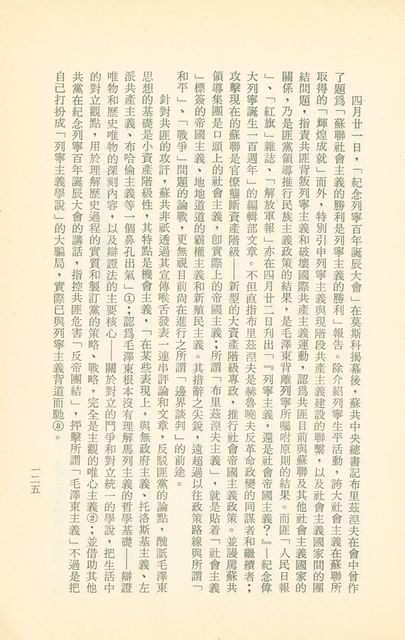 四月廿一日，「紀念列寧百年誕辰大會」在莫斯科揭幕後，蘇共中央總書記布里茲涅夫在會中曾作
了題爲「蘇聯社會主義的勝利是列寧主義的勝利」報告。除介紹列寧生平活動，誇大社會主義在蘇聯所
取得的「輝煌成就」而外，特別引申列寧主義與現階段共產主義建設的聯繫，以及社會主義國家間的團
結問題，指責共匪背叛列寧主義和破壞國際共產主義運動，認爲目前共匪與蘇聯及其他社會主義國家的
關係，乃是匪黨領導推行民族主義政策的結果，是毛澤東背離列寧所囑咐原則的結果。而匪「人民日報
」、「紅旗」雜誌、「解放軍報」亦在四月廿二日刊出「『列寧主義，還是社會帝國主義？』—紀念偉
大列寧誕生一百週年」的編輯部文章。不但直指布里茲涅夫是赫魯曉夫反革命政變的同謀者和繼續者；
攻擊現在的蘇聯是官僚壟斷資產階級——新型的大資產階級專政，推行社會帝國主義政策。並謾罵蘇共
領導集團是口頭上的社會主義，卽實際上的帝國主義；所謂「布里茲涅夫主義」，就是貼着「社會主義
」標簽的帝國主義、地地道道的霸權主義和新殖民主義。其措辭之尖銳，遠超過以往政策路線與所謂「
和平」、「戰爭」問題的論戰，更無視目前尚在進行之所謂「邊界談判」的前途。
針對共匪的攻訐，蘇共非祇透過其宣傳喉舌發表一連串評論和文章，反駁匪黨的論點，醜詆毛澤東
思想的基礎是小資產階級性，其特點是機會主義，「在某些表現上，與無政府主義、托洛斯基主義、左
派共產主義、布哈倫主義等一個鼻孔出氣」①；認爲毛澤東根本沒有理解馬列主義的哲學基礎——辯證
唯物和歷史唯物的深刻內容，以及辯證法的主要核心——關於對立的鬥爭和對立統一的學說，把生活中
的對立觀點，用於理解歷史過程的實質和製訂黨的策略、戰略，完全是主觀的唯心主義②；並借助其他
共黨在紀念列寧百年誕辰大會的講話，指控共匪危害「反帝團結」，抨擊所謂「毛澤東主義」不過是把
自己打扮成「列寧主義學說」的大騙局，實際已與列寧主義背道而馳③。
一二五